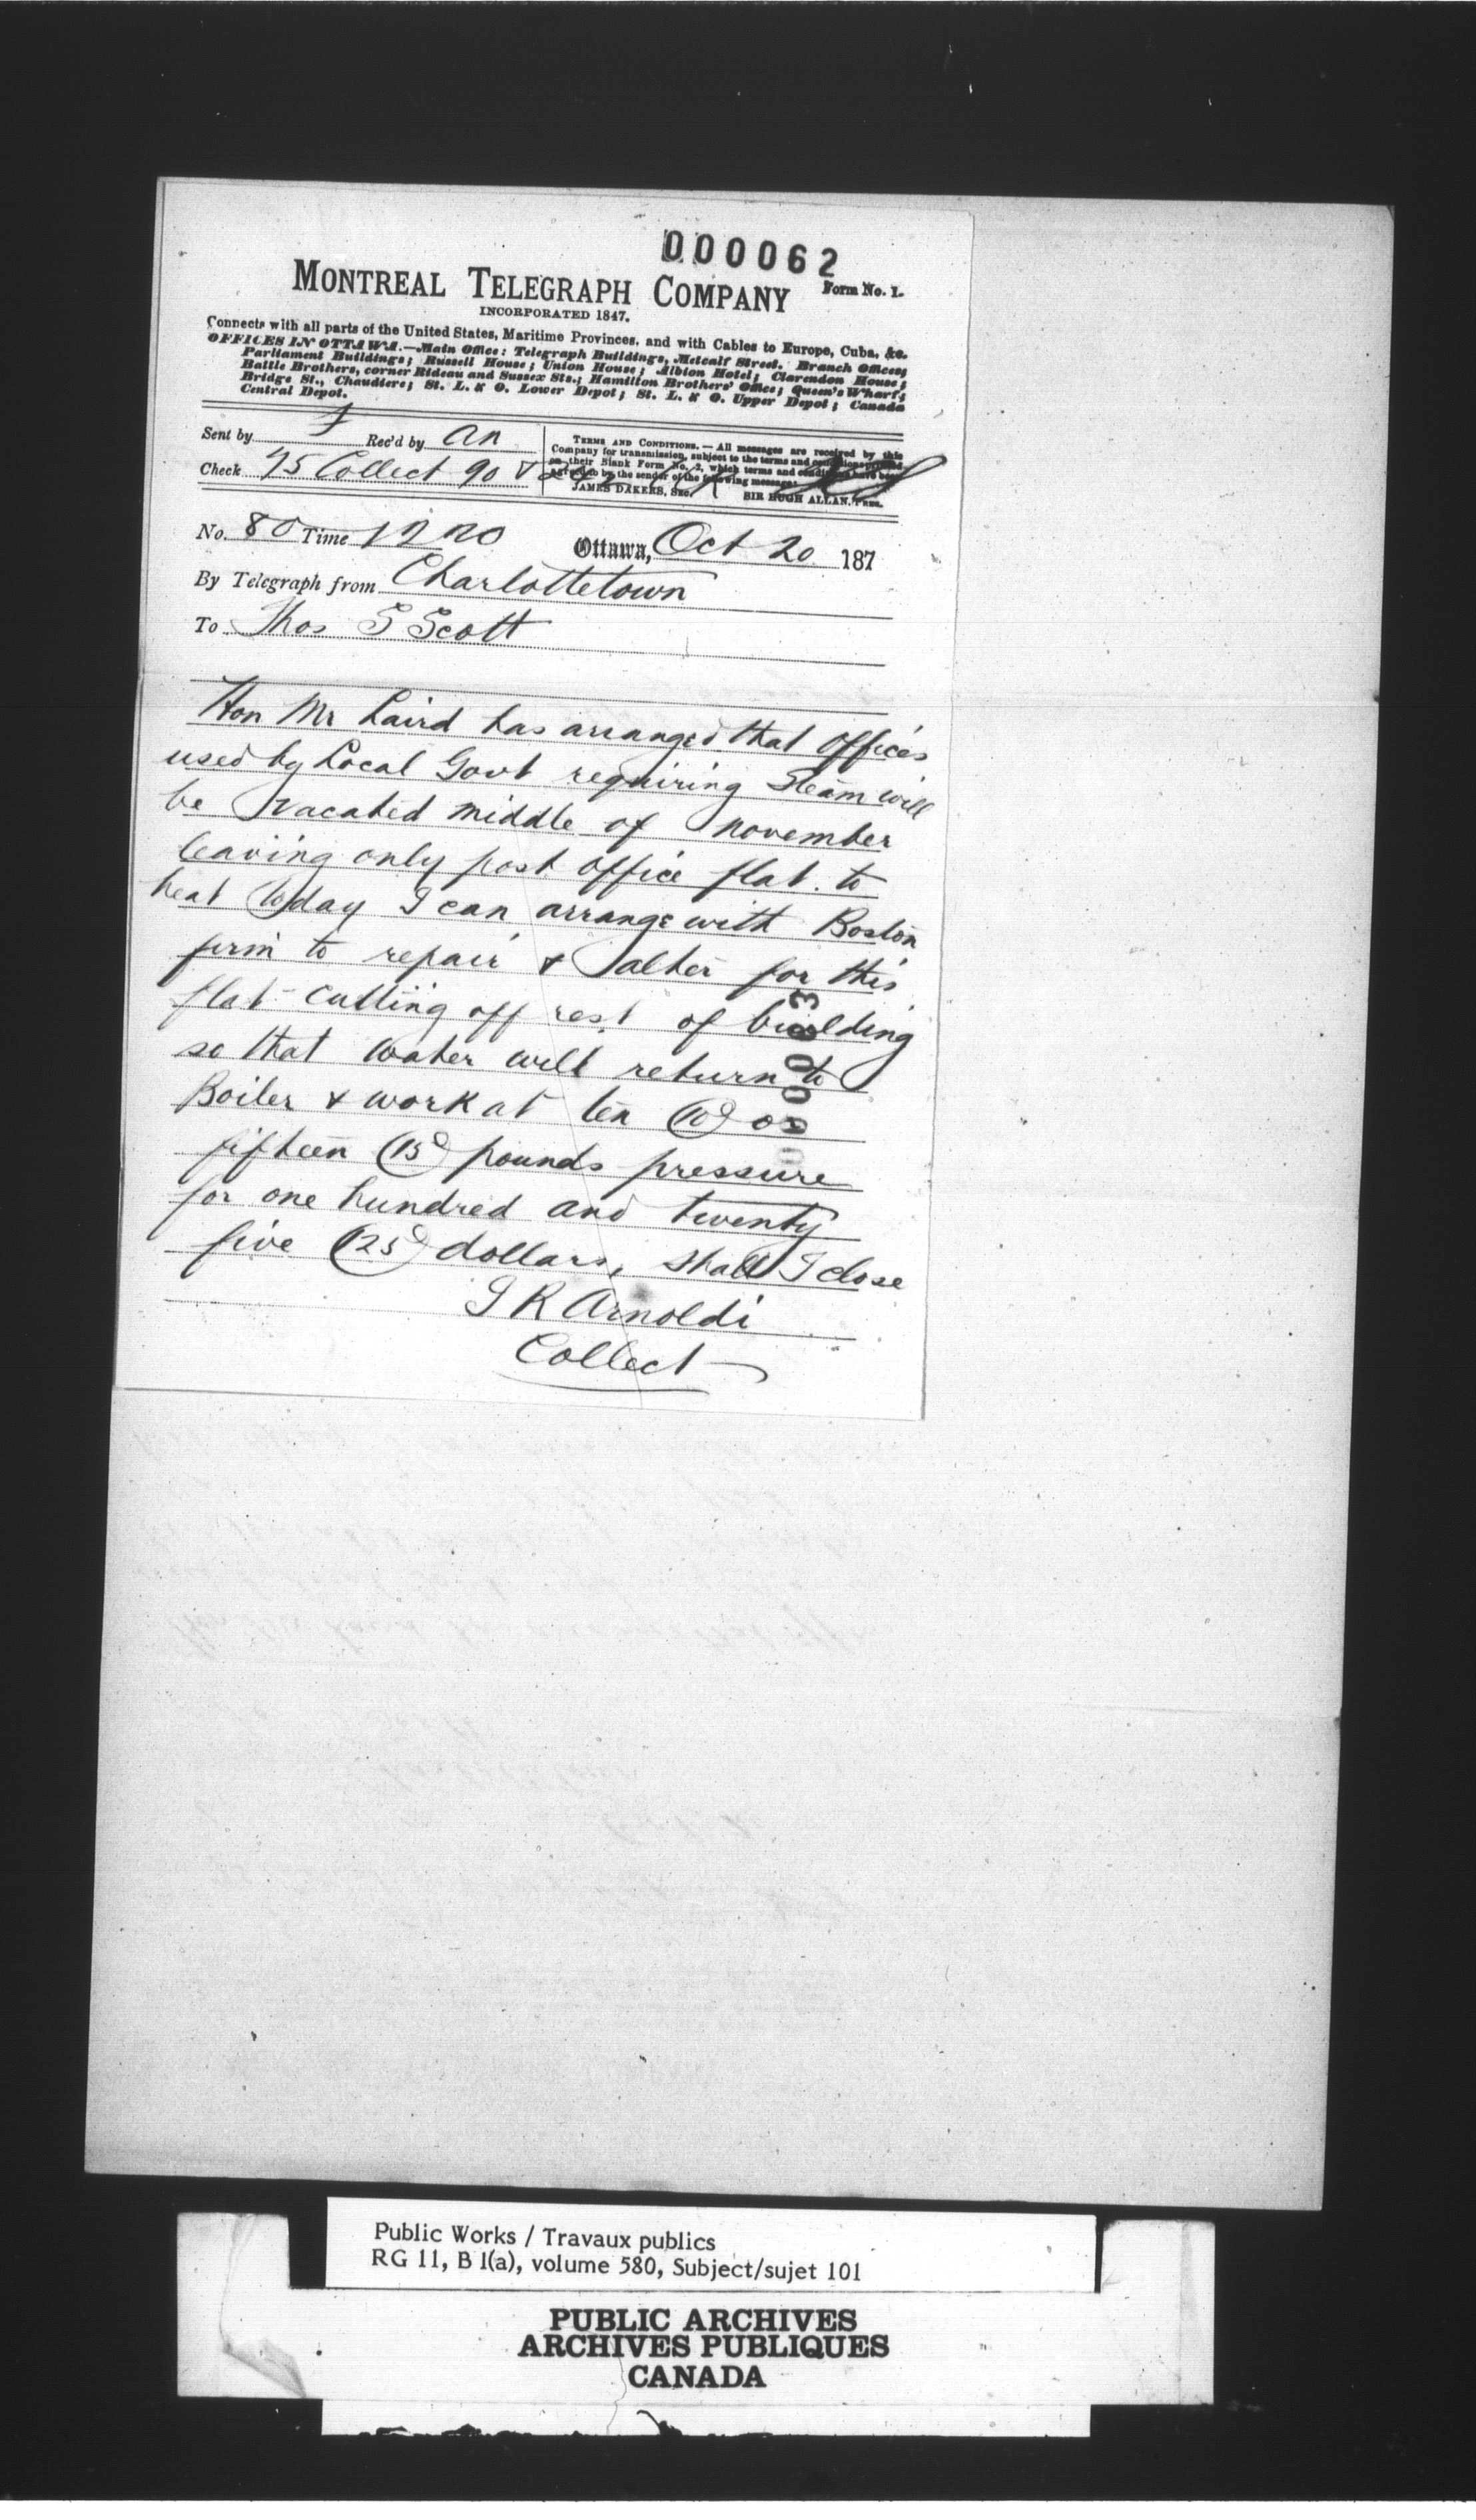 000062
MONTREAL TELEGRAPH COMPANY Form No. 1.
INCORPORATED 1847.
Connects with all parts of the United States, Maritime Provinces, and with Cables to Europe, Cuba, &c.
OFFICES IN OTTAWA.—Main Office: Telegraph Buildings, Metcalf Street. Branch Offices;
Parliament Buildings; Russell House; Union House; Albion Hotel; Clarendon House;
Battle Brothers, corner Rideau and Sussex Sts.; Hamilton Brothers' Office; Queen's Wharf;
Bridge St., Chaudiere; St. L. & O. Lower Depot; St. L. & O. Upper Depot; Canada
Central Depot.
Sent by Rec'd by an
Check 75 Collect 90 &
TERMS AND CONDITIONS.—All messages are received by this
Company for transmission, subject to the terms and conditions printed
on their Blank Form No. 2, which terms and conditions have been
agreed to by the sender of the following message.
JAMES DAKERS, Sec. SIR HUGH ALLAN, Pres.
No. 80 Time 12 20 Ottawa, Oct 20 187
By Telegraph from Charlottetown
To Thos S Scott
Hon Mr Laird has arranged that offices
used by Local Govt requiring Steam will
be vacated middle of november
leaving only post office flat. to
heat today I can arrange with Boston
firm to repair & alter for this
flat cutting off rest of building
so that water will return to
Boiler & work at ten (10) or
fifteen (15) pounds pressure
for one hundred and twenty
five (125) dollars, shall I close
J R Arnoldi
Collect
000063
Public Works / Travaux publics
RG 11, B 1(a), volume 580, Subject/sujet 101
PUBLIC ARCHIVES
ARCHIVES PUBLIQUES
CANADA